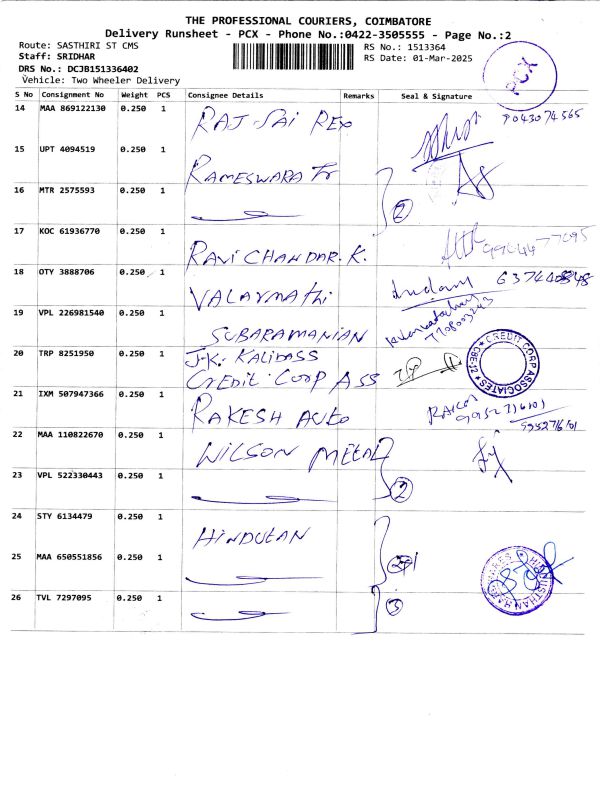 THE PROFESSIONAL COURIERS, COIMBATORE
Delivery Runsheet - PCX - Phone No.:0422-3505555 - Page No.:2
Route: SASTHIRI ST CMS
RS No.: 1513364
Staff: SRIDHAR
RS Date: 01-Mar-2025
DRS No.: DCJB151336402
Vehicle: Two Wheeler Delivery
PCX
S No Consignment No Weight PCS Consignee Details Remarks Seal & Signature
14 MAA 869122130 0.250 1 RAJ SAI REX
15 UPT 4094519 0.250 1 RAMESWARA Tr
16 MTR 2575593 0.250 1 2
17 KOC 61936770 0.250 1 RAVI CHANDAR. K.
18 OTY 3888706 0.250 1 VALARMATHI
19 VPL 226981540 0.250 1 SUBARAMANIAN
7708003243
20 TRP 8251950 0.250 1 J.K. KALIDASS
CREDIT CORP ASS
CREDIT CORP ASSOCIATES CBE-12
21 IXM 507947366 0.250 1 RAKESH AUTO
9952716101
22 MAA 110822670 0.250 1 WILSON METAL
23 VPL 522330443 0.250 1 2
24 STY 6134479 0.250 1 HINDUSTAN
25 MAA 650551856 0.250 1
26 TVL 7297095 0.250 1 3